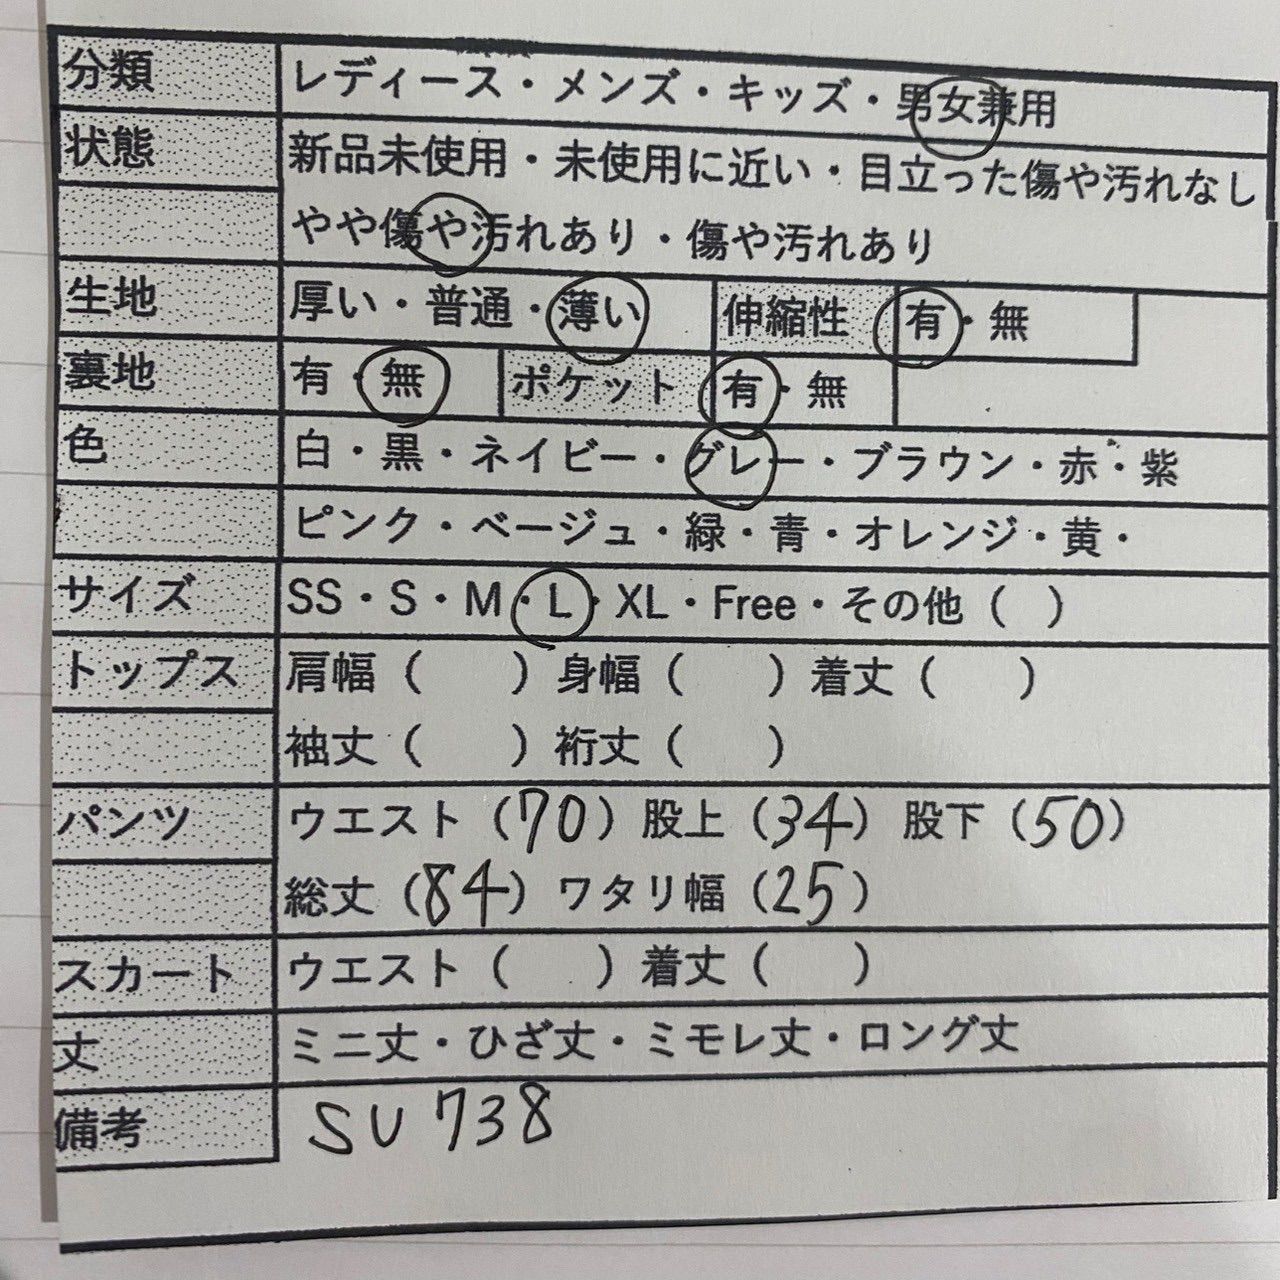 分類 レディース・メンズ・キッズ・男女兼用
状態 新品未使用・未使用に近い・目立った傷や汚れなし
やや傷や汚れあり・傷や汚れあり
生地 厚い・普通・薄い 伸縮性 有・無
裏地 有・無 ポケット 有・無
色 白・黒・ネイビー・グレー・ブラウン・赤・紫
ピンク・ベージュ・緑・青・オレンジ・黄・
サイズ SS・S・M・L・XL・Free・その他（ ）
トップス 肩幅（ ）身幅（ ）着丈（ ）
袖丈（ ）裄丈（ ）
パンツ ウエスト（70）股上（34）股下（50）
総丈（84）ワタリ幅（25）
スカート ウエスト（ ）着丈（ ）
丈 ミニ丈・ひざ丈・ミモレ丈・ロング丈
備考 SU738